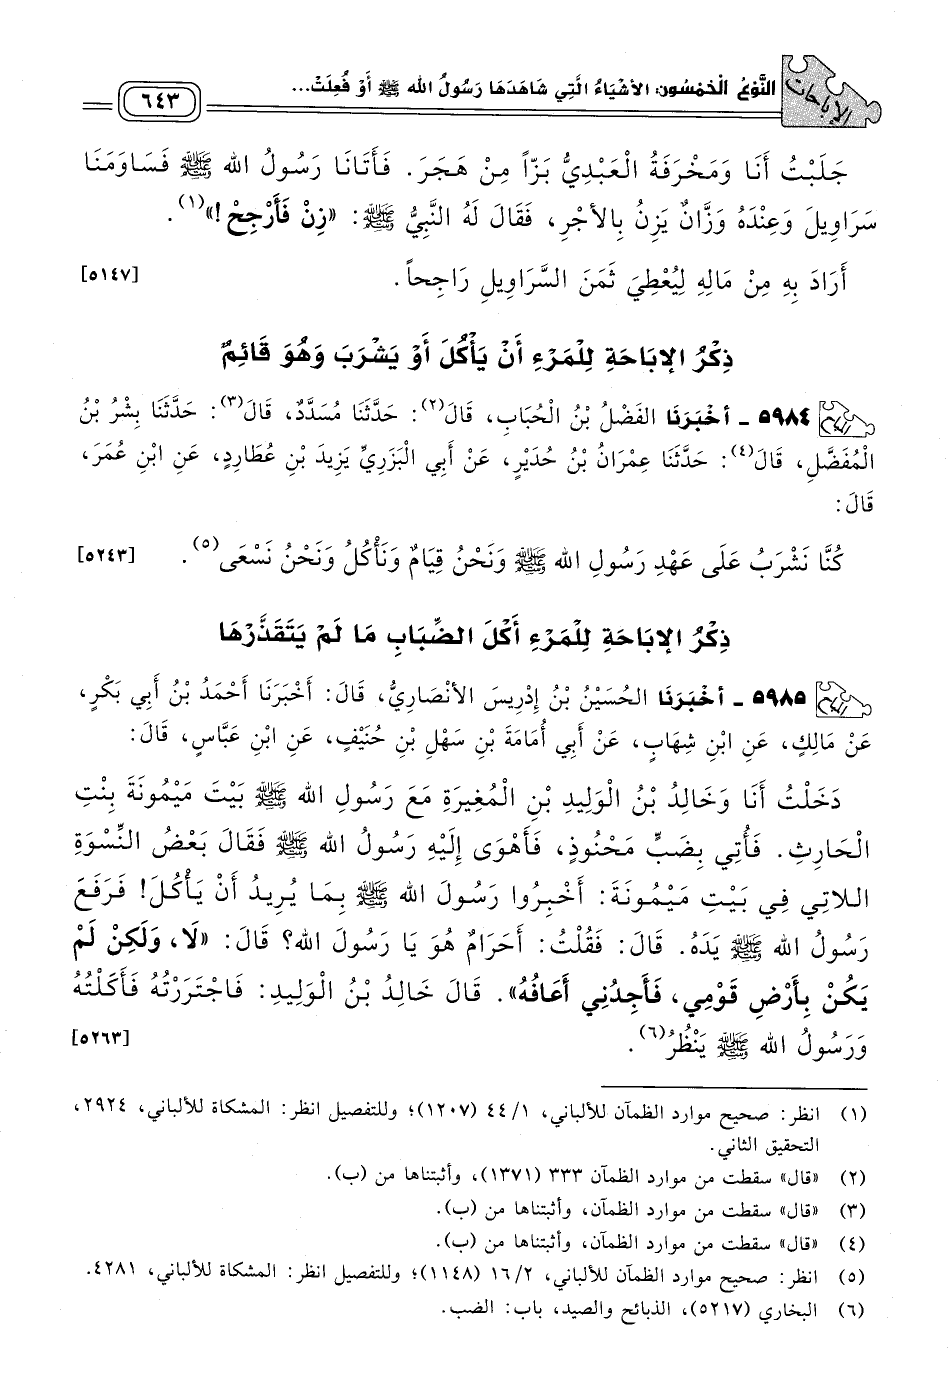 الإباحات
النَّوْعُ الْخَمْسُون: الأشْيَاءُ الَّتِي شَاهَدَهَا رَسُولُ الله ﷺ أوْ فُعِلَتْ...
٦٤٣
جَلَبْتُ أَنَا وَمَخْرَفَةُ الْعَبْدِيُّ بَزّاً مِنْ هَجَرَ. فَأَتَانَا رَسُولُ الله ﷺ فَسَاوَمَنَا
سَرَاوِيلَ وَعِنْدَهُ وَزَّانٌ يَزِنُ بِالأَجْرِ، فَقَالَ لَهُ النَّبِيُّ ﷺ: «زِنْ فَأَرْجِحْ!»(١).
أَرَادَ بِهِ مِنْ مَالِهِ لِيُعْطِيَ ثَمَنَ السَّرَاوِيلِ رَاجِحاً. [٥١٤٧]
ذِكْرُ الإبَاحَةِ لِلْمَرْءِ أَنْ يَأْكُلَ أَوْ يَشْرَبَ وَهُوَ قَائِمٌ
٥٩٨٤ ـ أخْبَرَنَا الفَضْلُ بْنُ الْحُبَابِ، قَالَ(٢): حَدَّثَنَا مُسَدَّدٌ، قَالَ(٣): حَدَّثَنَا بِشْرُ بْنُ
الْمُفَضَّلِ، قَالَ(٤): حَدَّثَنَا عِمْرَانُ بْنُ حُدَيْرٍ، عَنْ أَبِي الْبَزَرِيِّ يَزِيدَ بْنِ عُطَارِدٍ، عَنِ ابْنِ عُمَرَ،
قَالَ:
كُنَّا نَشْرَبُ عَلَى عَهْدِ رَسُولِ الله ﷺ وَنَحْنُ قِيَامٌ وَنَأْكُلُ وَنَحْنُ نَسْعَى(٥). [٥٢٤٣]
ذِكْرُ الإبَاحَةِ لِلْمَرْءِ أَكْلَ الضِّبَابِ مَا لَمْ يَتَقَذَّرْهَا
٥٩٨٥ ـ أخْبَرَنَا الحُسَيْنُ بْنُ إِدْرِيسَ الأَنْصَارِيُّ، قَالَ: أَخْبَرَنَا أَحْمَدُ بْنُ أَبِي بَكْرٍ،
عَنْ مَالِكٍ، عَنِ ابْنِ شِهَابٍ، عَنْ أَبِي أُمَامَةَ بْنِ سَهْلِ بْنِ حُنَيْفٍ، عَنِ ابْنِ عَبَّاسٍ، قَالَ:
دَخَلْتُ أَنَا وَخَالِدُ بْنُ الْوَلِيدِ بْنِ الْمُغِيرَةِ مَعَ رَسُولِ الله ﷺ بَيْتَ مَيْمُونَةَ بِنْتِ
الْحَارِثِ. فَأُتِي بِضَبٍّ مَحْنُوذٍ، فَأَهْوَى إِلَيْهِ رَسُولُ الله ﷺ فَقَالَ بَعْضُ النِّسْوَةِ
اللاتِي فِي بَيْتِ مَيْمُونَةَ: أَخْبِرُوا رَسُولَ الله ﷺ بِمَا يُرِيدُ أَنْ يَأْكُلَ! فَرَفَعَ
رَسُولُ الله ﷺ يَدَهُ. قَالَ: فَقُلْتُ: أَحَرَامٌ هُوَ يَا رَسُولَ الله؟ قَالَ: «لَا، وَلَكِنْ لَمْ
يَكُنْ بِأَرْضِ قَوْمِي، فَأَجِدُنِي أَعَافُهُ». قَالَ خَالِدُ بْنُ الْوَلِيدِ: فَاجْتَرَرْتُهُ فَأَكَلْتُهُ
وَرَسُولُ الله ﷺ يَنْظُرُ(٦). [٥٢٦٣]
(١) انظر: صحيح موارد الظمآن للألباني، ٤٤/١ (١٢٠٧)؛ وللتفصيل انظر: المشكاة للألباني، ٢٩٢٤،
التحقيق الثاني.
(٢) «قال» سقطت من موارد الظمآن ٣٣٣ (١٣٧١)، وأثبتناها من (ب).
(٣) «قال» سقطت من موارد الظمآن، وأثبتناها من (ب).
(٤) «قال» سقطت من موارد الظمآن، وأثبتناها من (ب).
(٥) انظر: صحيح موارد الظمآن للألباني، ١٦/٢ (١١٤٨)؛ وللتفصيل انظر: المشكاة للألباني، ٤٢٨١.
(٦) البخاري (٥٢١٧)، الذبائح والصيد، باب: الضب.